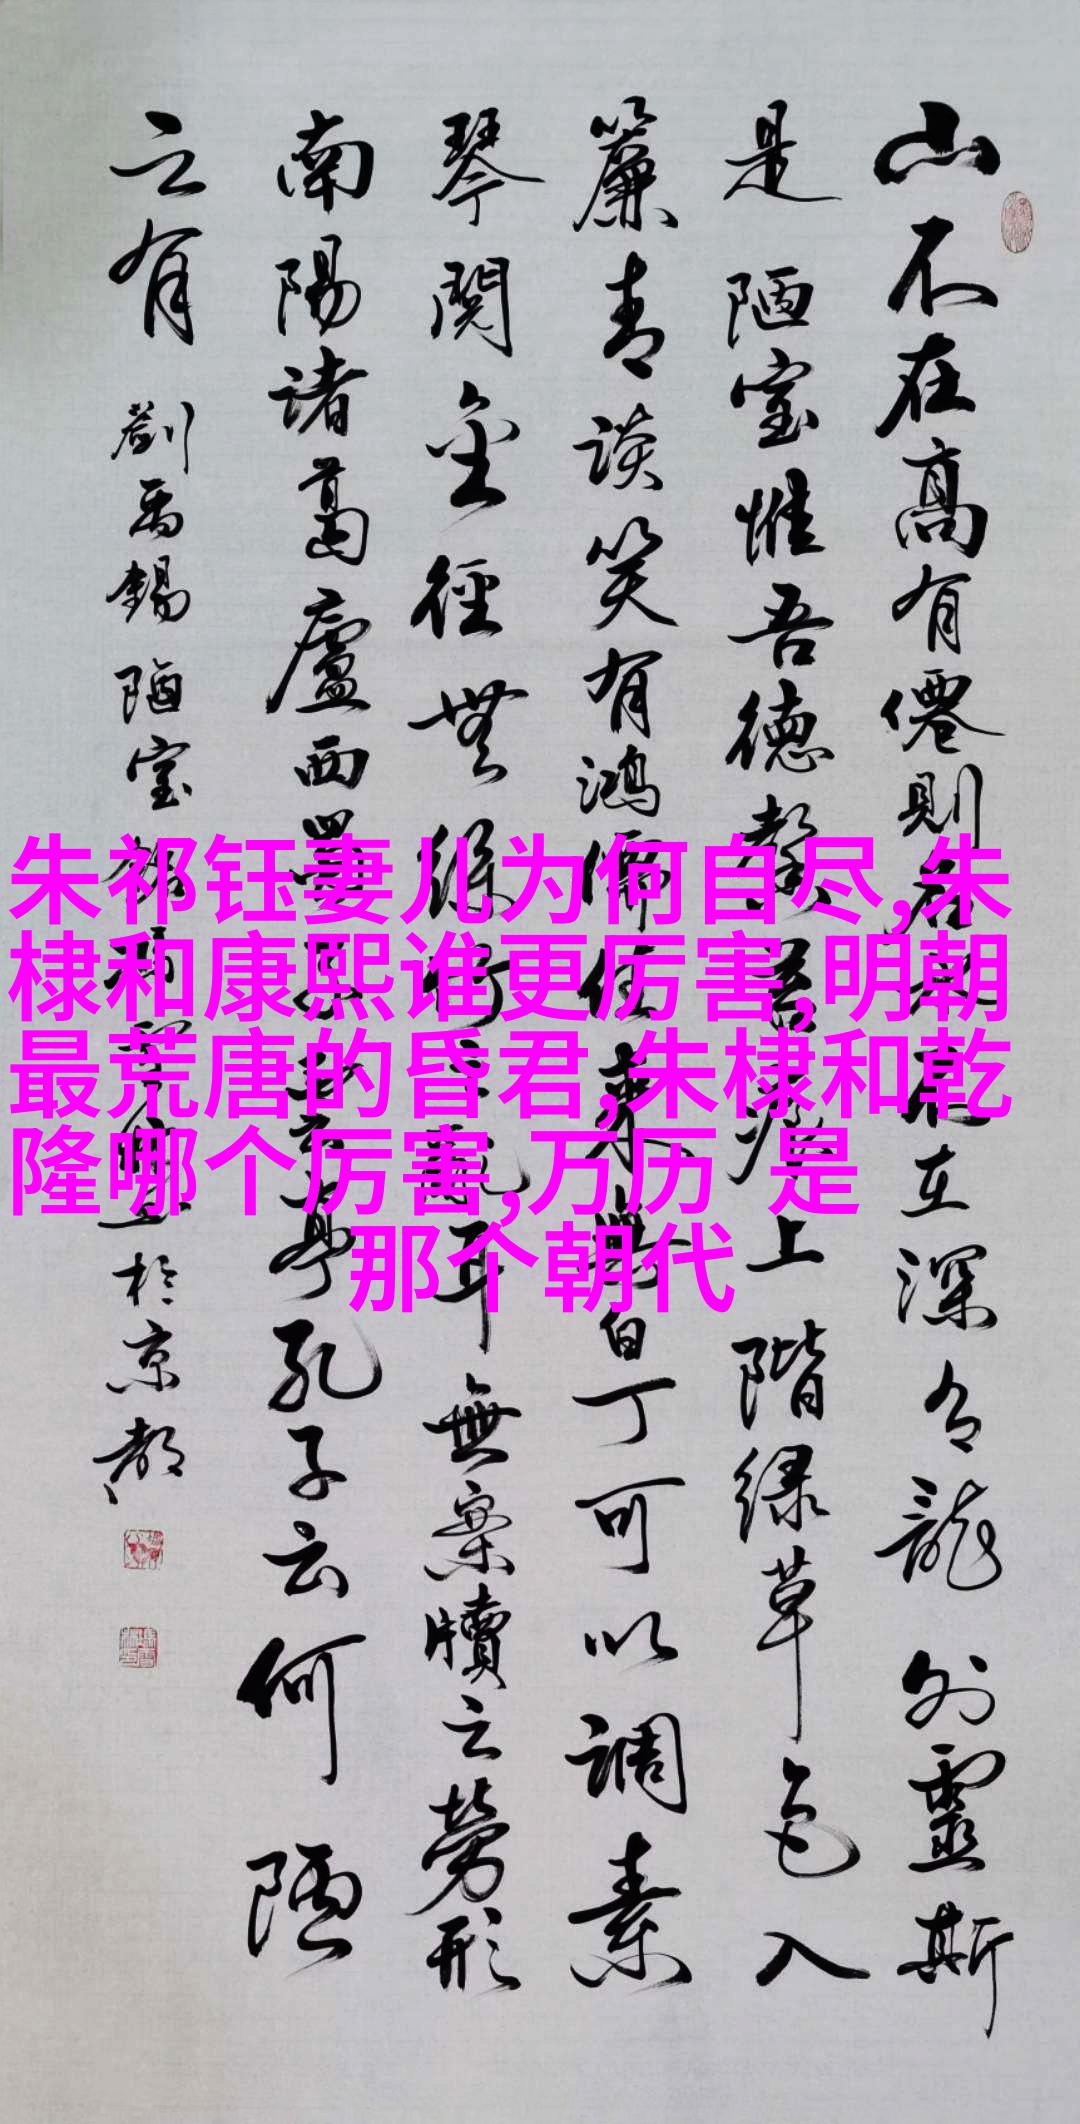 山不在高有僊則名水不在深有龍則靈斯
是陋室惟吾德馨苔痕上階绿草色入
簾青談笑有鴻儒往来無白丁可以调素
琴閱金徑無絲竹之亂耳無案牘之勞形
南陽诸葛廬西蜀子雲亭孔子云何陋
之有 劉禹錫陋室銘 於京都
朱祁钰妻儿为何自尽,朱
棣和康熙谁更厉害,明朝
最荒唐的昏君,朱棣和乾
隆哪个厉害,万历 是
那个朝代